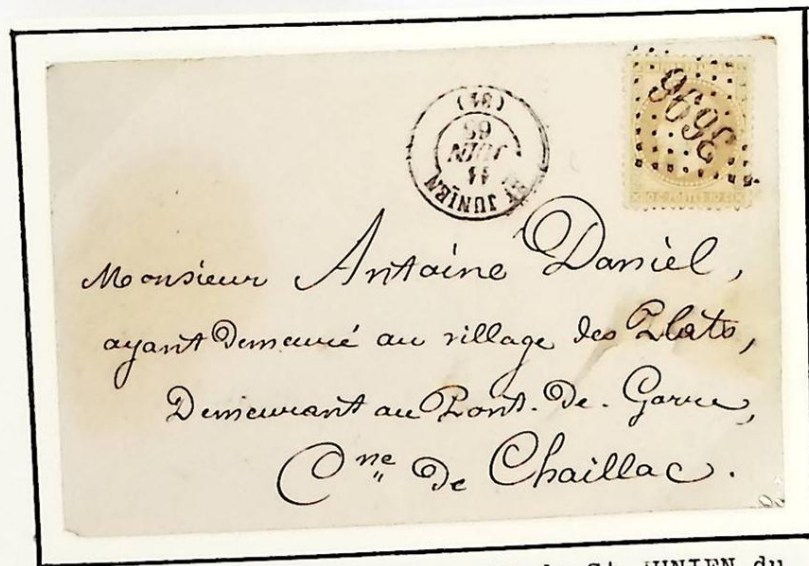 (81)
65
JUIN
11
ST JUNIEN
3696
10 C. POSTES 10 CEN
Monsieur Antoine Daniel,
ayant Demeuré au village des Plats,
Demeurant au Pont. De. Gorre,
Cne De Chaillac.
St JUNIEN du